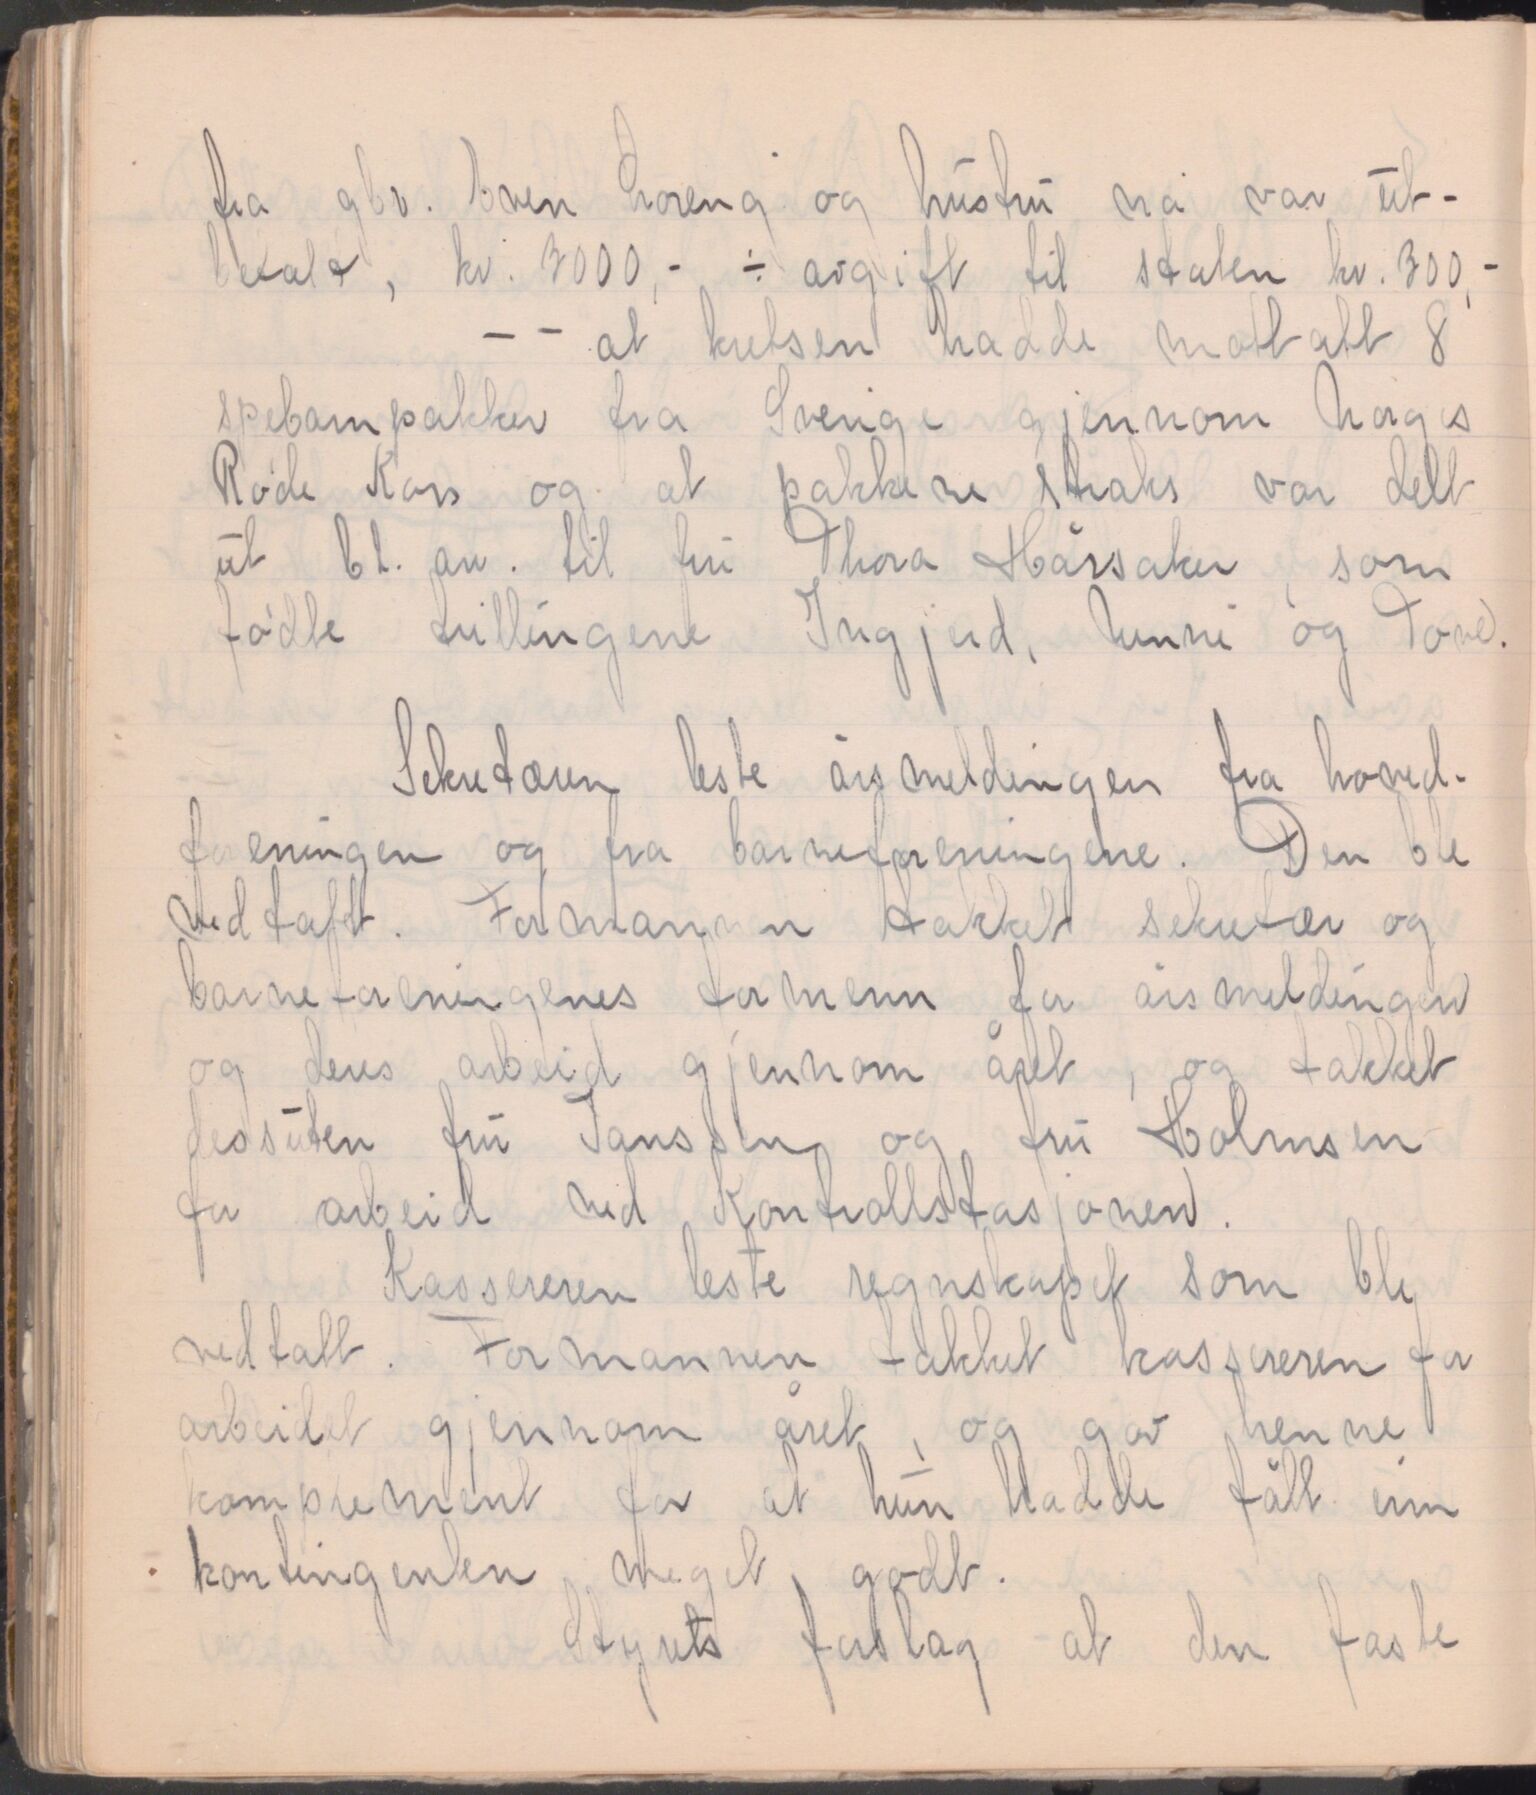 fra gbr. Even Horeng og hustru nå var ut-
betalt, kr. 3000,- ÷ avgift til staten kr. 300,-
— — at kretsen hadde mottatt 8
spebarnpakker fra Sverige gjennom Norges
Røde Kors og at pakkene straks var delt
ut bl. an. til fru Thora Hårsaker, som
fødte trillingene Ingjerd, Unni og Tove.
Sekretæren leste årsmeldingen fra hoved-
foreningen og fra barneforeningene. Den ble
vedtatt. Formannen takket sekretær og
barneforeningenes formenn for årsmeldingen
og deres arbeid gjennom året, og takket
dessuten fru Janssen og fru Holmsen
for arbeid ved Kontrollstasjonen.
Kassereren leste regnskapet som ble
vedtatt. Formannen takket kassereren for
arbeidet gjennom året, og gav henne
kompliment for at hun hadde fått inn
kontingenten meget godt.
Styrets forslag at den faste